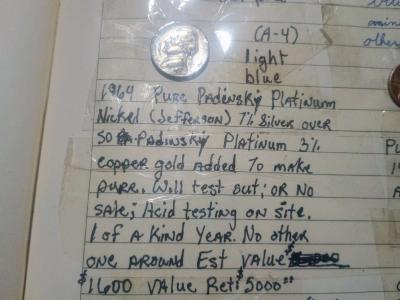 (A-4)
light
blue
1964 Pure Padinsky Platinum
Nickel (Jefferson) 7% Silver over
SO Padinsky Platinum 3%
copper gold Added To make
pure. Will test out; OR NO
Sale; Acid testing on site.
1 of A Kind Year. No other
one Around Est Value
$1600 Value Ret $5000.00
other